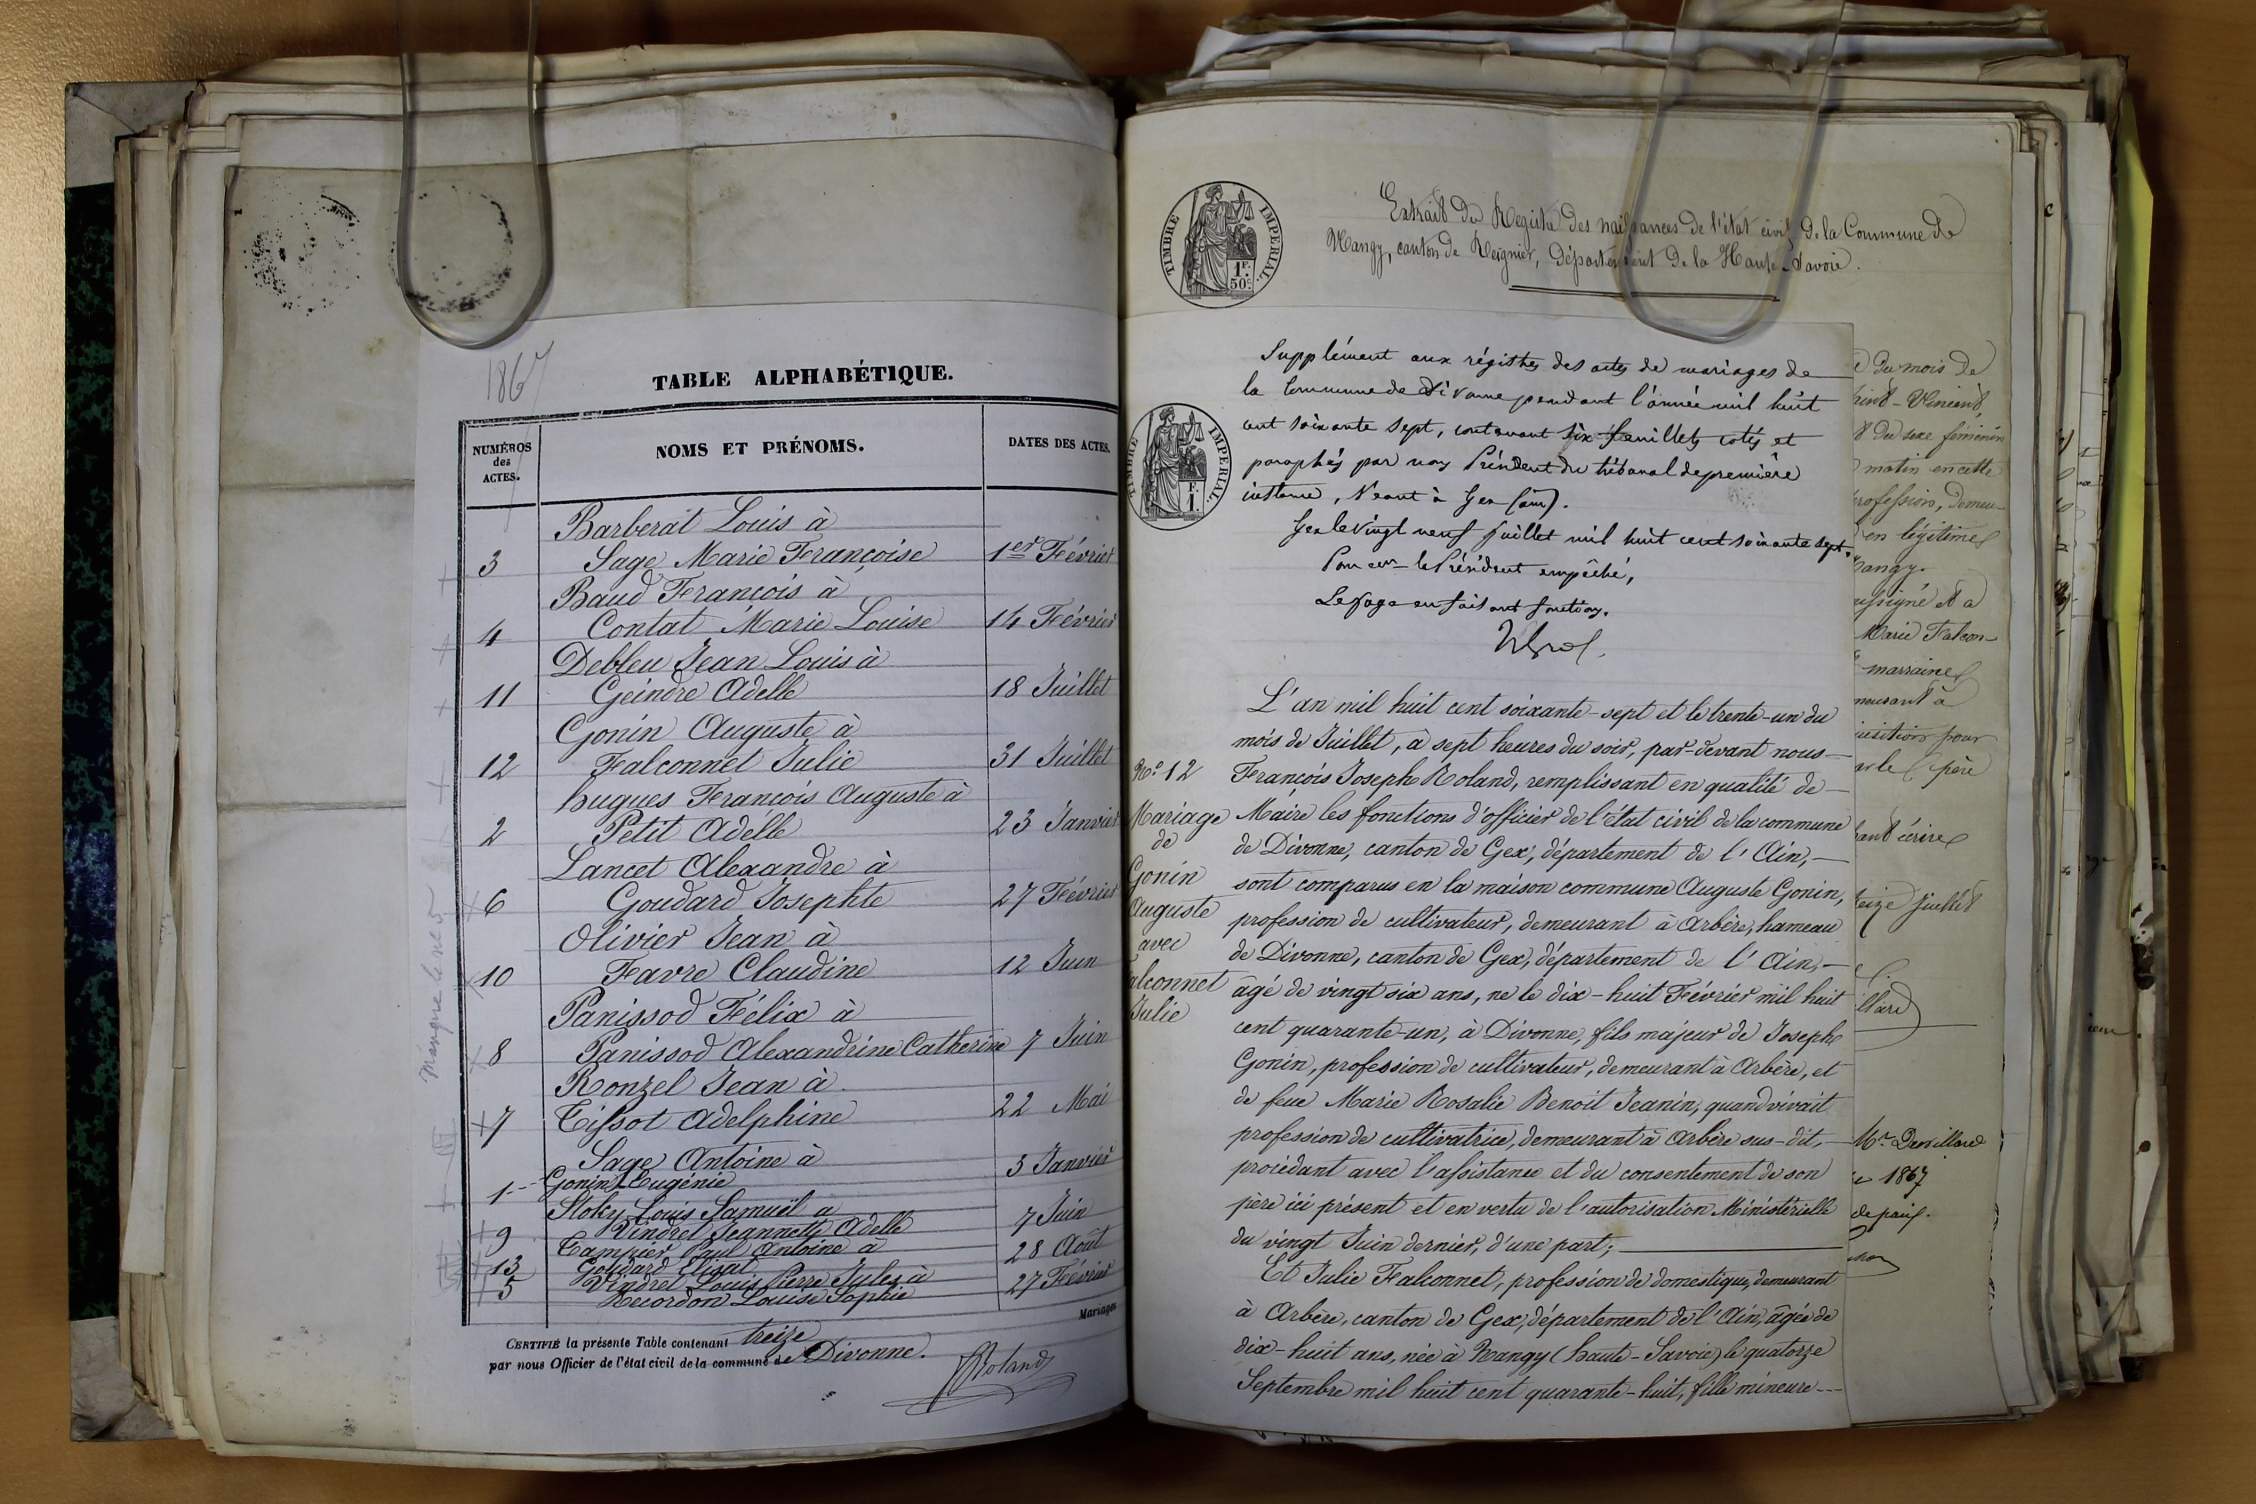 1867
TABLE ALPHABÉTIQUE.
NUMÉROS des ACTES.
NOMS ET PRÉNOMS.
DATES DES ACTES.
Barberat Louis à
3 Sage Marie Françoise 1er Février
Baud François à
4 Contat Marie Louise 14 Février
Debleu Jean Louis à
11 Geindre Adelle 18 Juillet
Gonin Auguste à
12 Falconnet Julie 31 Juillet
hugues François Auguste à
2 Petit Adelle 23 Janvier
Lancet Alexandre à
6 Goudard Josephte 27 Février
Olivier Jean à
10 Favre Claudine 12 Juin
Panissod Félix à
8 Panissod Alexandrine Catherine 7 Juin
Ronzel Jean à
7 Tissot Adelphine 22 Mai
Sage Antoine à
1 Gonin Eugénie 3 Janvier
Stoky Louis Samuël à
9 Vindret Jeannette Adelle 7 Juin
Tampier Paul Antoine à
13 Goudard Elisat 28 Août
Vindret Louis Pierre Jules à
5 Recordon Louise Sophie 27 Février
Mariages
CERTIFIÉ la présente Table contenant treize
par nous Officier de l'état civil de la commune de Divonne.
Roland
manque le n° 5
TIMBRE IMPERIAL.
1F. 50c.
Extrait du Registre des naissances de l'état civil de la Commune de
Nangy, canton de Reignier, Département de la Haute-Savoie.
TIMBRE IMPERIAL.
1 F.
Supplément aux régistres des actes de mariages de
la Commune de Divonne pendant l'année mil huit
cent soixante sept, contenant six feuillets cotés et
paraphés par nous Président du tribunal de première
instance, séant à Gex (ain).
Gex le vingt neuf juillet mil huit cent soixante sept.
Pour le Président empêché,
Le juge en faisant fonctions.
L'an mil huit cent soixante-sept et le trente-un du
mois de Juillet, à sept heures du soir, par-devant nous
François Joseph Roland, remplissant en qualité de
Maire les fonctions d'officier de l'état civil de la commune
de Divonne, canton de Gex, département de l'Ain,
sont comparus en la maison commune Auguste Gonin,
profession de cultivateur, demeurant à Arbère, hameau
de Divonne, canton de Gex, département de l'Ain,
âgé de vingt six ans, né le dix-huit Février mil huit
cent quarante-un, à Divonne, fils majeur de Joseph
Gonin, profession de cultivateur, demeurant à Arbère, et
de feue Marie Rosalie Benoit Jeanin, quand vivait
profession de cultivatrice, demeurant à Arbère sus-dit,
procédant avec l'assistance et du consentement de son
père ici présent et en vertu de l'autorisation Ministérielle
du vingt Juin dernier, d'une part;
Et Julie Falconnet, profession de domestique, demeurant
à Arbère, canton de Gex, département de l'Ain, âgée de
dix-huit ans, née à Nangy (haute-Savoie) le quatorze
Septembre mil huit cent quarante-huit, fille mineure
No. 12
Mariage
de
Gonin
Auguste
avec
alconnet
Julie
du mois de
du sexe féminin
matin en cette
rofession, demeu-
en légitime
angy.
ussigné et a
Marie Falcon-
marraine
meurant à
père
ant écrire
Juillet
Mr. Devillard
1867
de paix.